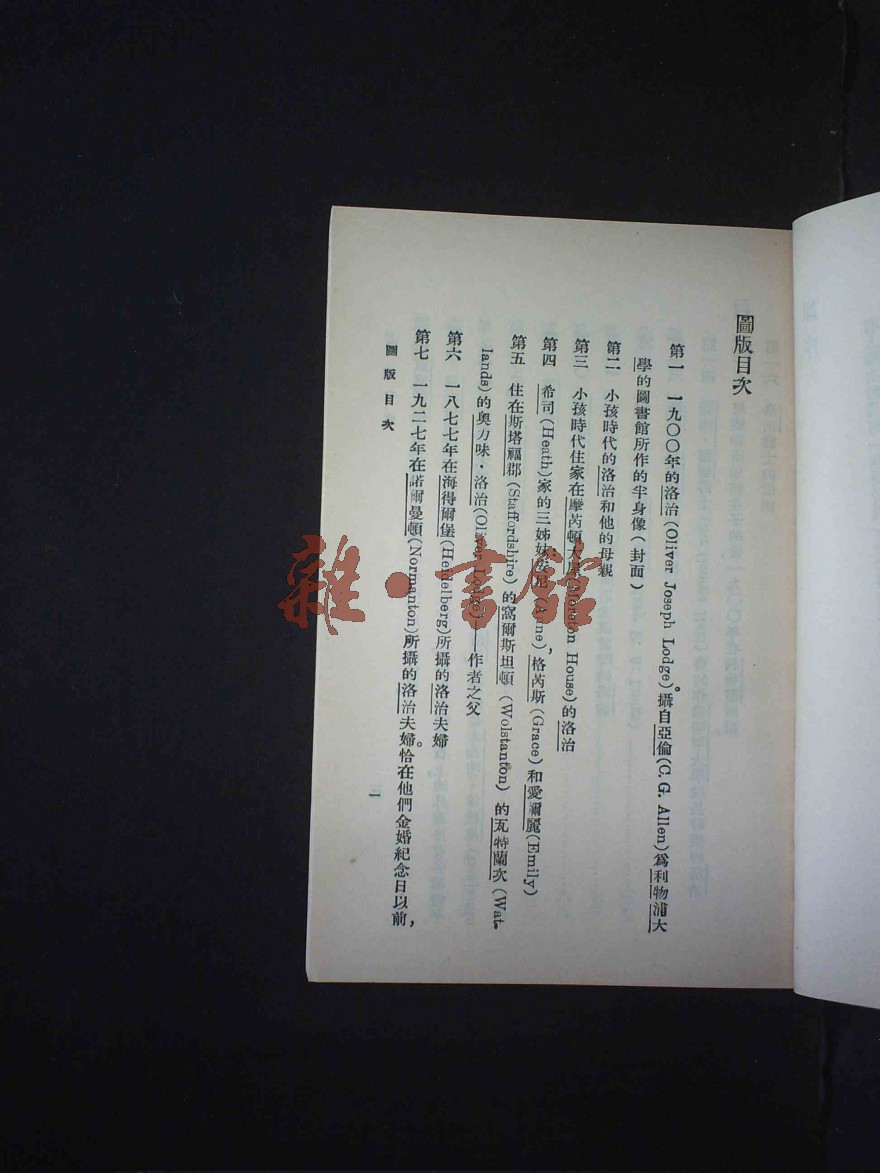 圖版目次
第一 一九〇〇年的洛治(Oliver Joseph Lodge)。攝自亞倫(C. G. Allen)爲利物浦大
學的圖書館所作的半身像(封面)
第二 小孩時代的洛治和他的母親
第三 小孩時代住家在摩芮頓大廈(Moreton House)的洛治
第四 希司(Heath)家的三姊妹安尼(Anne),格芮斯(Grace)和愛彌麗(Emily)
第五 住在斯塔福郡(Staffordshire)的窩爾斯坦頓(Wolstanton)的瓦特蘭次(Wat-
lands)的奧力味·洛治(Oliver Lodge)——作者之父
第六 一八七七年在海得爾堡(Heidelberg)所攝的洛治夫婦
第七 一九二七年在諾爾曼頓(Normanton)所攝的洛治夫婦。恰在他們金婚紀念日以前,
圖版目次
一
雜·書館